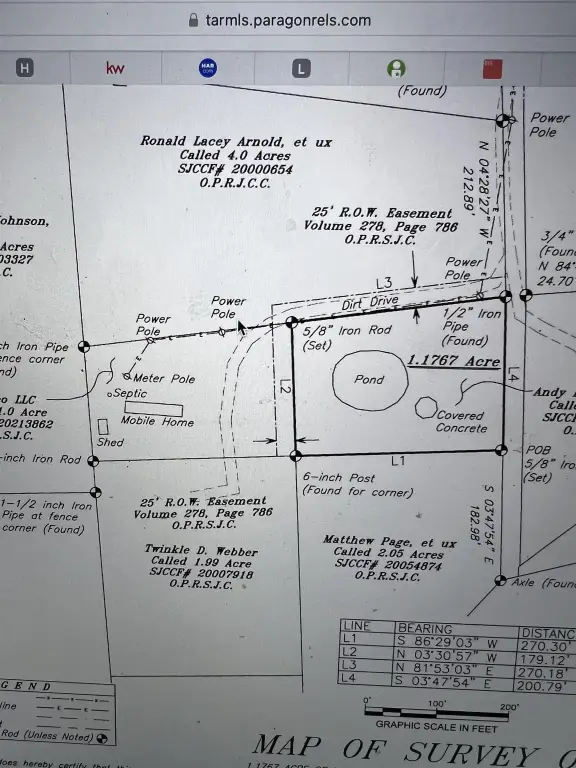 tarmls.paragonrels.com
H
kw
HAR
.com
L
(Found)
Power
Pole
Ronald Lacey Arnold, et ux
Called 4.0 Acres
SJCCF# 20000654
O.P.R.J.C.C.
N 04°28'27" W
212.89'
25' R.O.W. Easement
Volume 278, Page 786
O.P.R.S.J.C.
ohnson,
Acres
03327
.C.
3/4"
(Foun
N 84°
24.70
Power
Pole
L3
Dirt Drive
Power
Pole
Power
Pole
5/8" Iron Rod
(Set)
1/2" Iron
Pipe
(Found)
ch Iron Pipe
ence corner
nd)
1.1767 Acre
Pond
L2
L4
Meter Pole
Septic
Mobile Home
Shed
o LLC
1.0 Acre
20213862
.S.J.C.
Covered
Concrete
Andy
Call
SJCC
O.
-inch Iron Rod
L1
POB
5/8" Iro
(Set)
6-inch Post
(Found for corner)
1-1/2 inch Iron
Pipe at fence
corner (Found)
25' R.O.W. Easement
Volume 278, Page 786
O.P.R.S.J.C.
S 03°47'54" E
182.98'
Twinkle D. Webber
Called 1.99 Acre
SJCCF# 20007918
O.P.R.S.J.C.
Matthew Page, et ux
Called 2.05 Acres
SJCCF# 20054874
O.P.R.S.J.C.
Axle (Foun
LINE BEARING DISTANC
L1 S 86°29'03" W 270.30'
L2 N 03°30'57" W 179.12'
L3 N 81°53'03" E 270.18'
L4 S 03°47'54" E 200.79'
0' 100' 200'
GRAPHIC SCALE IN FEET
G E N D
line
Rod (Unless Noted)
MAP OF SURVEY O
does hereby certify that this